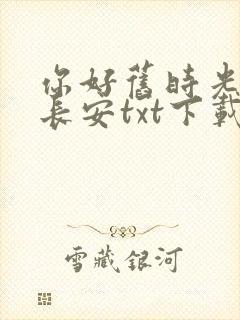 你好舊時光
長安txt下載
雪藏銀河